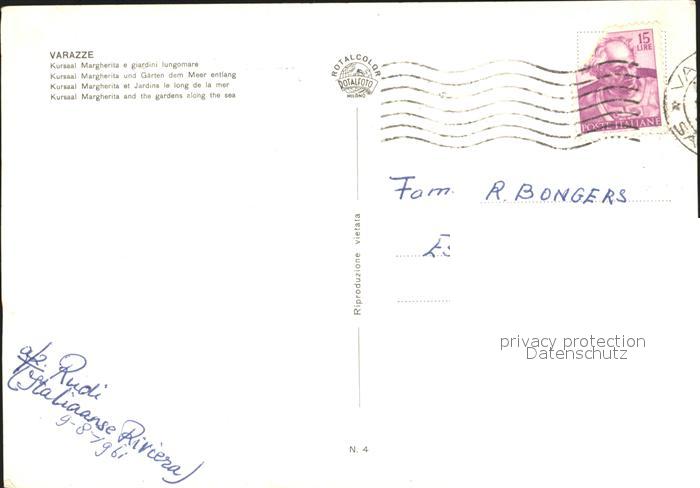 VARAZZE
Kursaal Margherita e giardini lungomare
Kursaal Margherita und Gärten dem Meer entlang
Kursaal Margherita et Jardins le long de la mer
Kursaal Margherita and the gardens along the sea
ROTALCOLOR
ROTALFOTO
MILANO
15
LIRE
POSTE ITALIANE
VA
Fam. R. BONGERS
Riproduzione vietata
privacy protection
Datenschutz
Rudi
(Italiaanse Riviera)
9-8-1961
N. 4